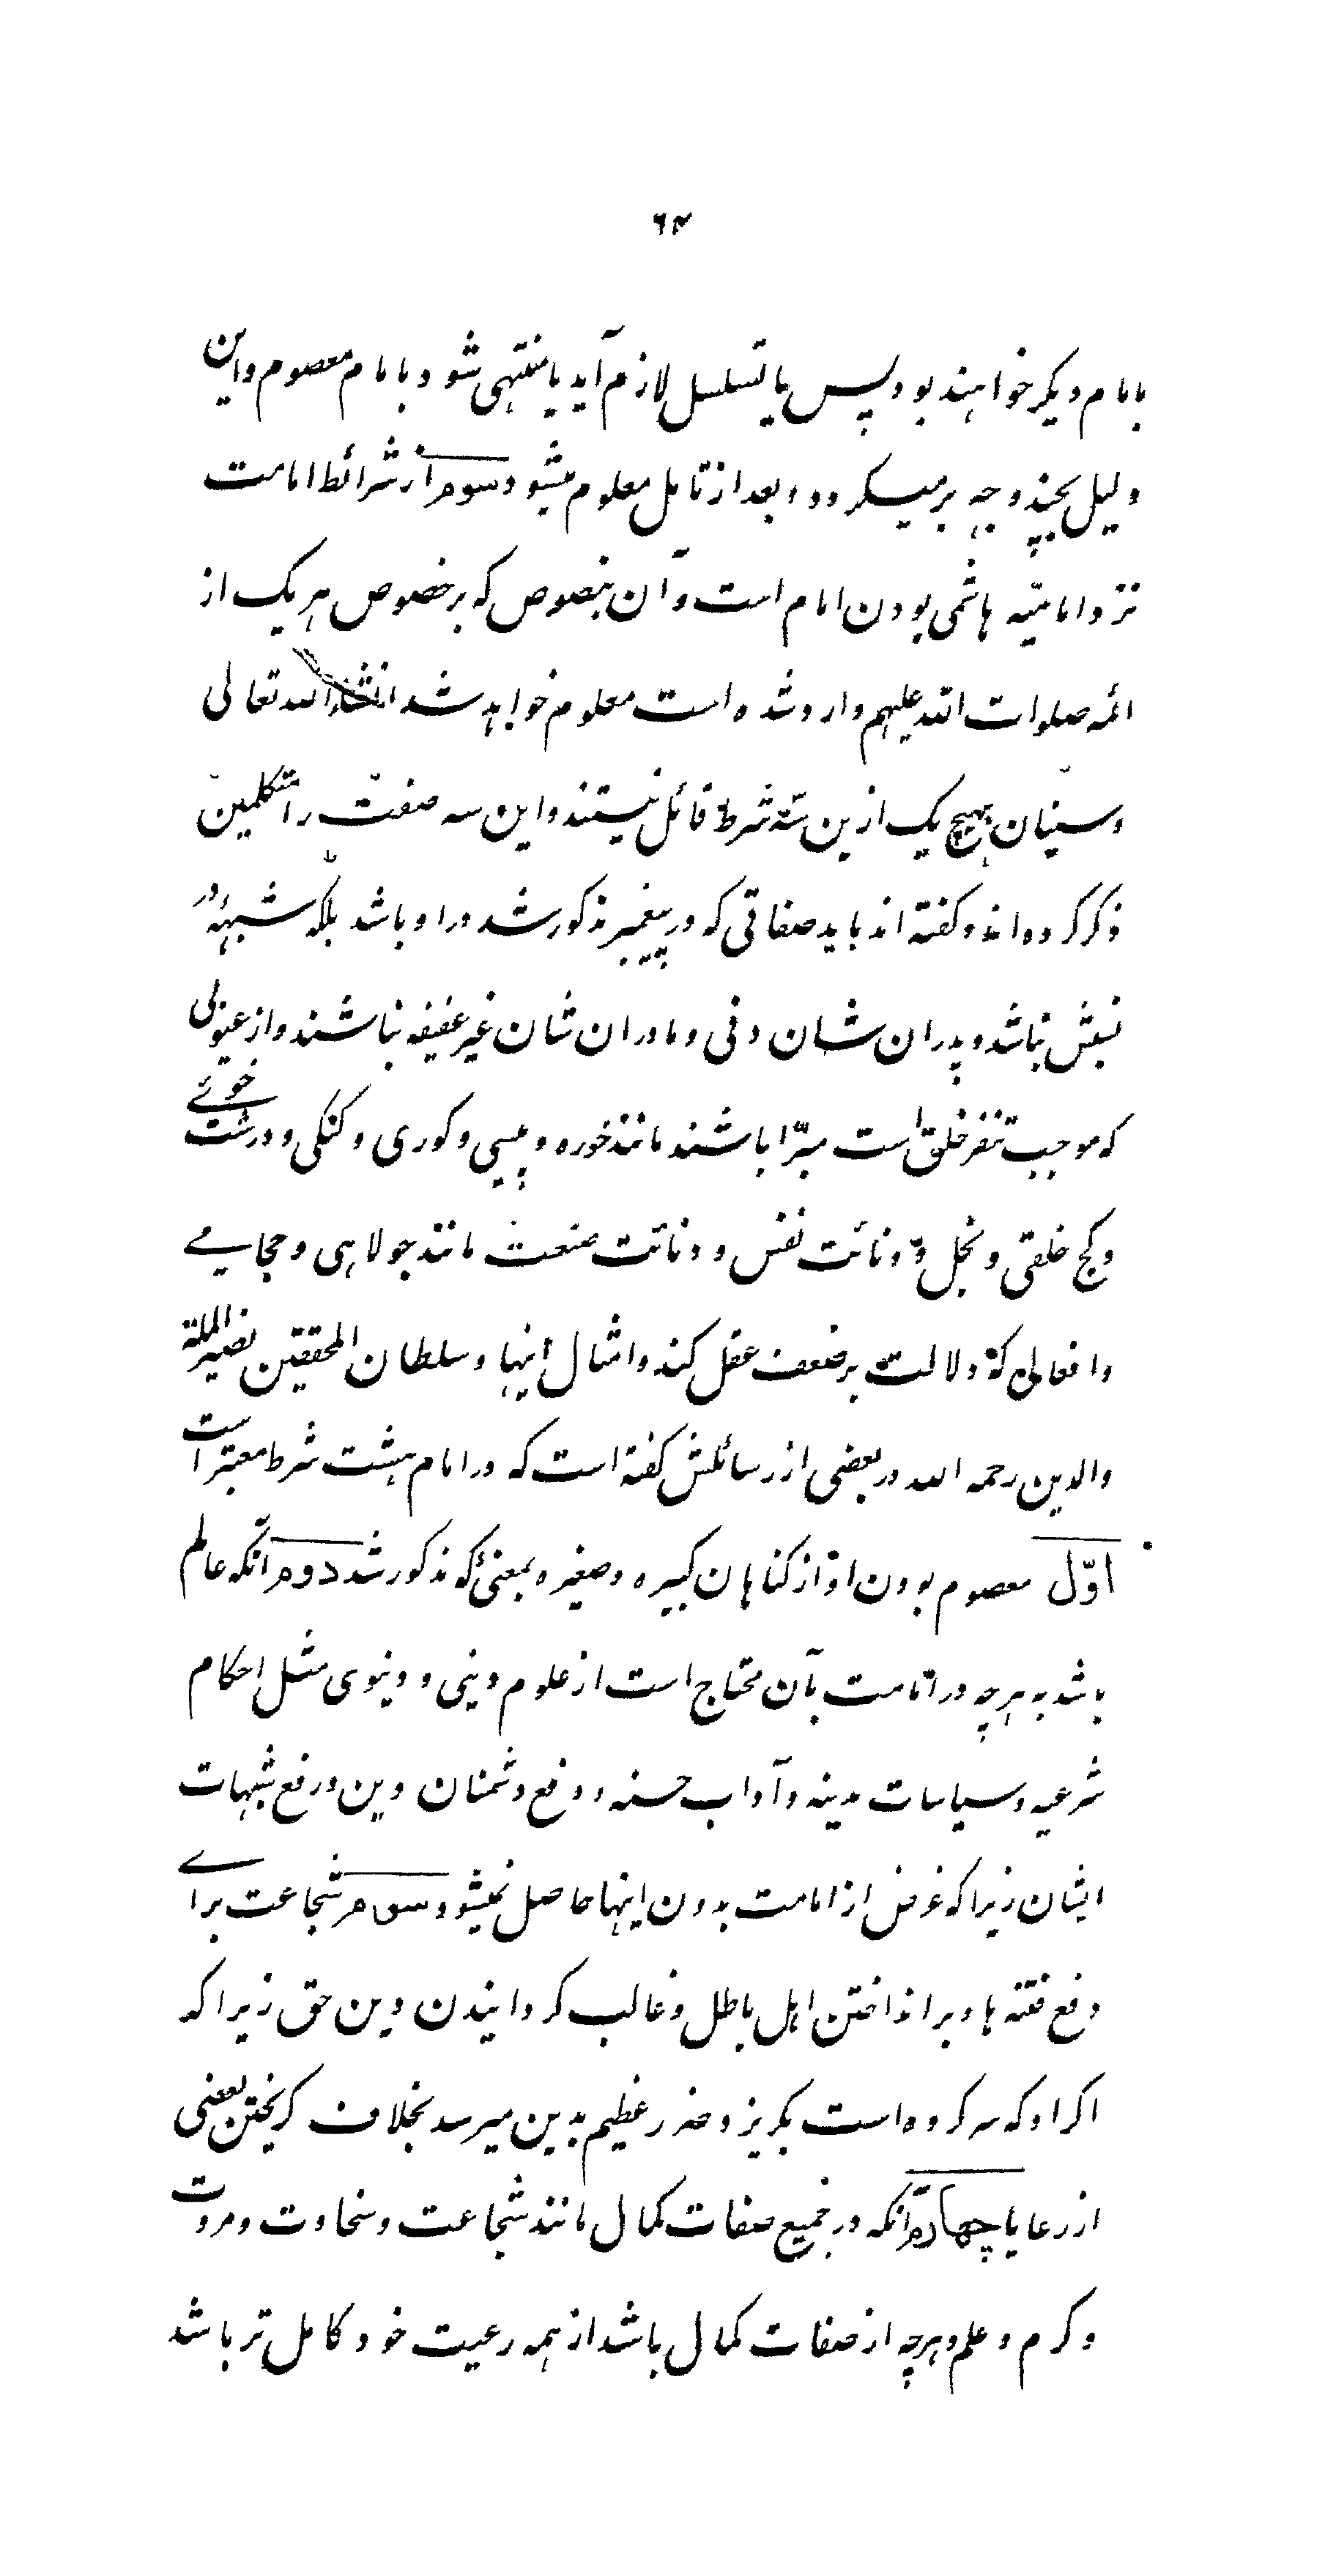 ۶۴
بامام دیگر خواهند بود پس یا تسلسل لازم آید یا منتهی شود بامام معصوم و این
دلیل بچند وجه برمیگردد و بعد از تامل معلوم میشود سوم از شرائط امامت
نزد امامیّه هاشمی بودن امام است و آن بنصوص که بر خصوص هر یک از
ائمه صلوات الله علیهم وارد شده است معلوم خواهد شد انشاء الله تعالی
و سنیان بهیچ یک ازین سّه شرط قائل نیستند و این سه صفت را متکلمین
ذکر کرده اند و گفته اند باید صفاتی که در پیغمبر مذکور شد در او باشد بلکه شبهۀ در
نسبش نباشد و پدران شان دنی و مادران شان غیر عفیفه نباشند و از عیوبی
که موجب تنفر خلق است مبرّا باشند مانند خوره و پیسی و کوری و گنگی و درشت خوئے
و کج خلقی و بخل و دنائت نفس و دنائت صنعت مانند جولاهی و حجامے
و افعالی که دلالت بر ضعف عقل کند و امثال اینها و سلطان المحققین نصیر الملة
والدین رحمه الله در بعضی از رسائلش گفته است که در امام هشت شرط معتبر است
اوّل معصوم بودن او از گناهان کبیره و صغیره بمعنیٔ که مذکور شد دوم آنکه عالم
باشد به هرچه در امامت بآن محتاج است از علوم دینی و دنیوی مثل احکام
شرعیه و سیاسات مدینه و آداب حسنه و دفع دشمنان دین و رفع شبهات
ایشان زیرا که غرض از امامت بدون اینها حاصل نمیشود سوم شجاعت براے
دفع فتنه ها و بر انداختن اهل باطل و غالب گردانیدن دین حق زیرا که
اگر او که سرکرده است بگریزد ضرر عظیم بدین میرسد بخلاف گریختن بعضی
از رعایا چهارم آنکه در جمیع صفات کمال مانند شجاعت و سخاوت و مروت
و کرم و علم و هرچه از صفات کمال باشد از همه رعیت خود کامل تر باشد